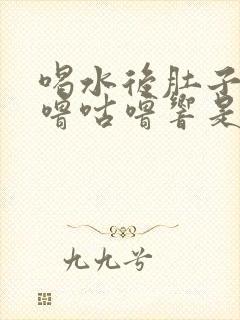 喝水後肚子
嚕咕嚕響是
九九兮